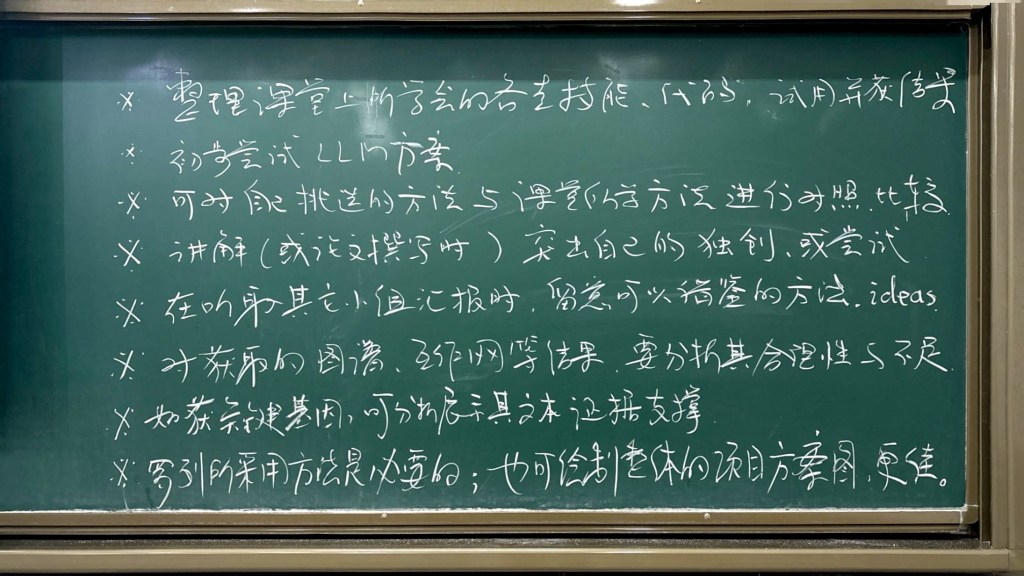 ※ 整理课堂上所学会的各支持能、代码，试用并获结果
※ 初步尝试 LLM方案
※ 可对自己挑选的方法与课堂所学方法进行对照比较
※ 讲解（或论文撰写时）突出自己的独创、或尝试
※ 在听取其它小组汇报时，留意可以借鉴的方法.ideas.
※ 对获取的图谱、互作网等结果，要分析其合理性与不足
※ 如获关键基因，可分析展示其文本证据支撑
※ 罗列所采用方法是必要的；也可绘制整体的项目方案图，更佳。